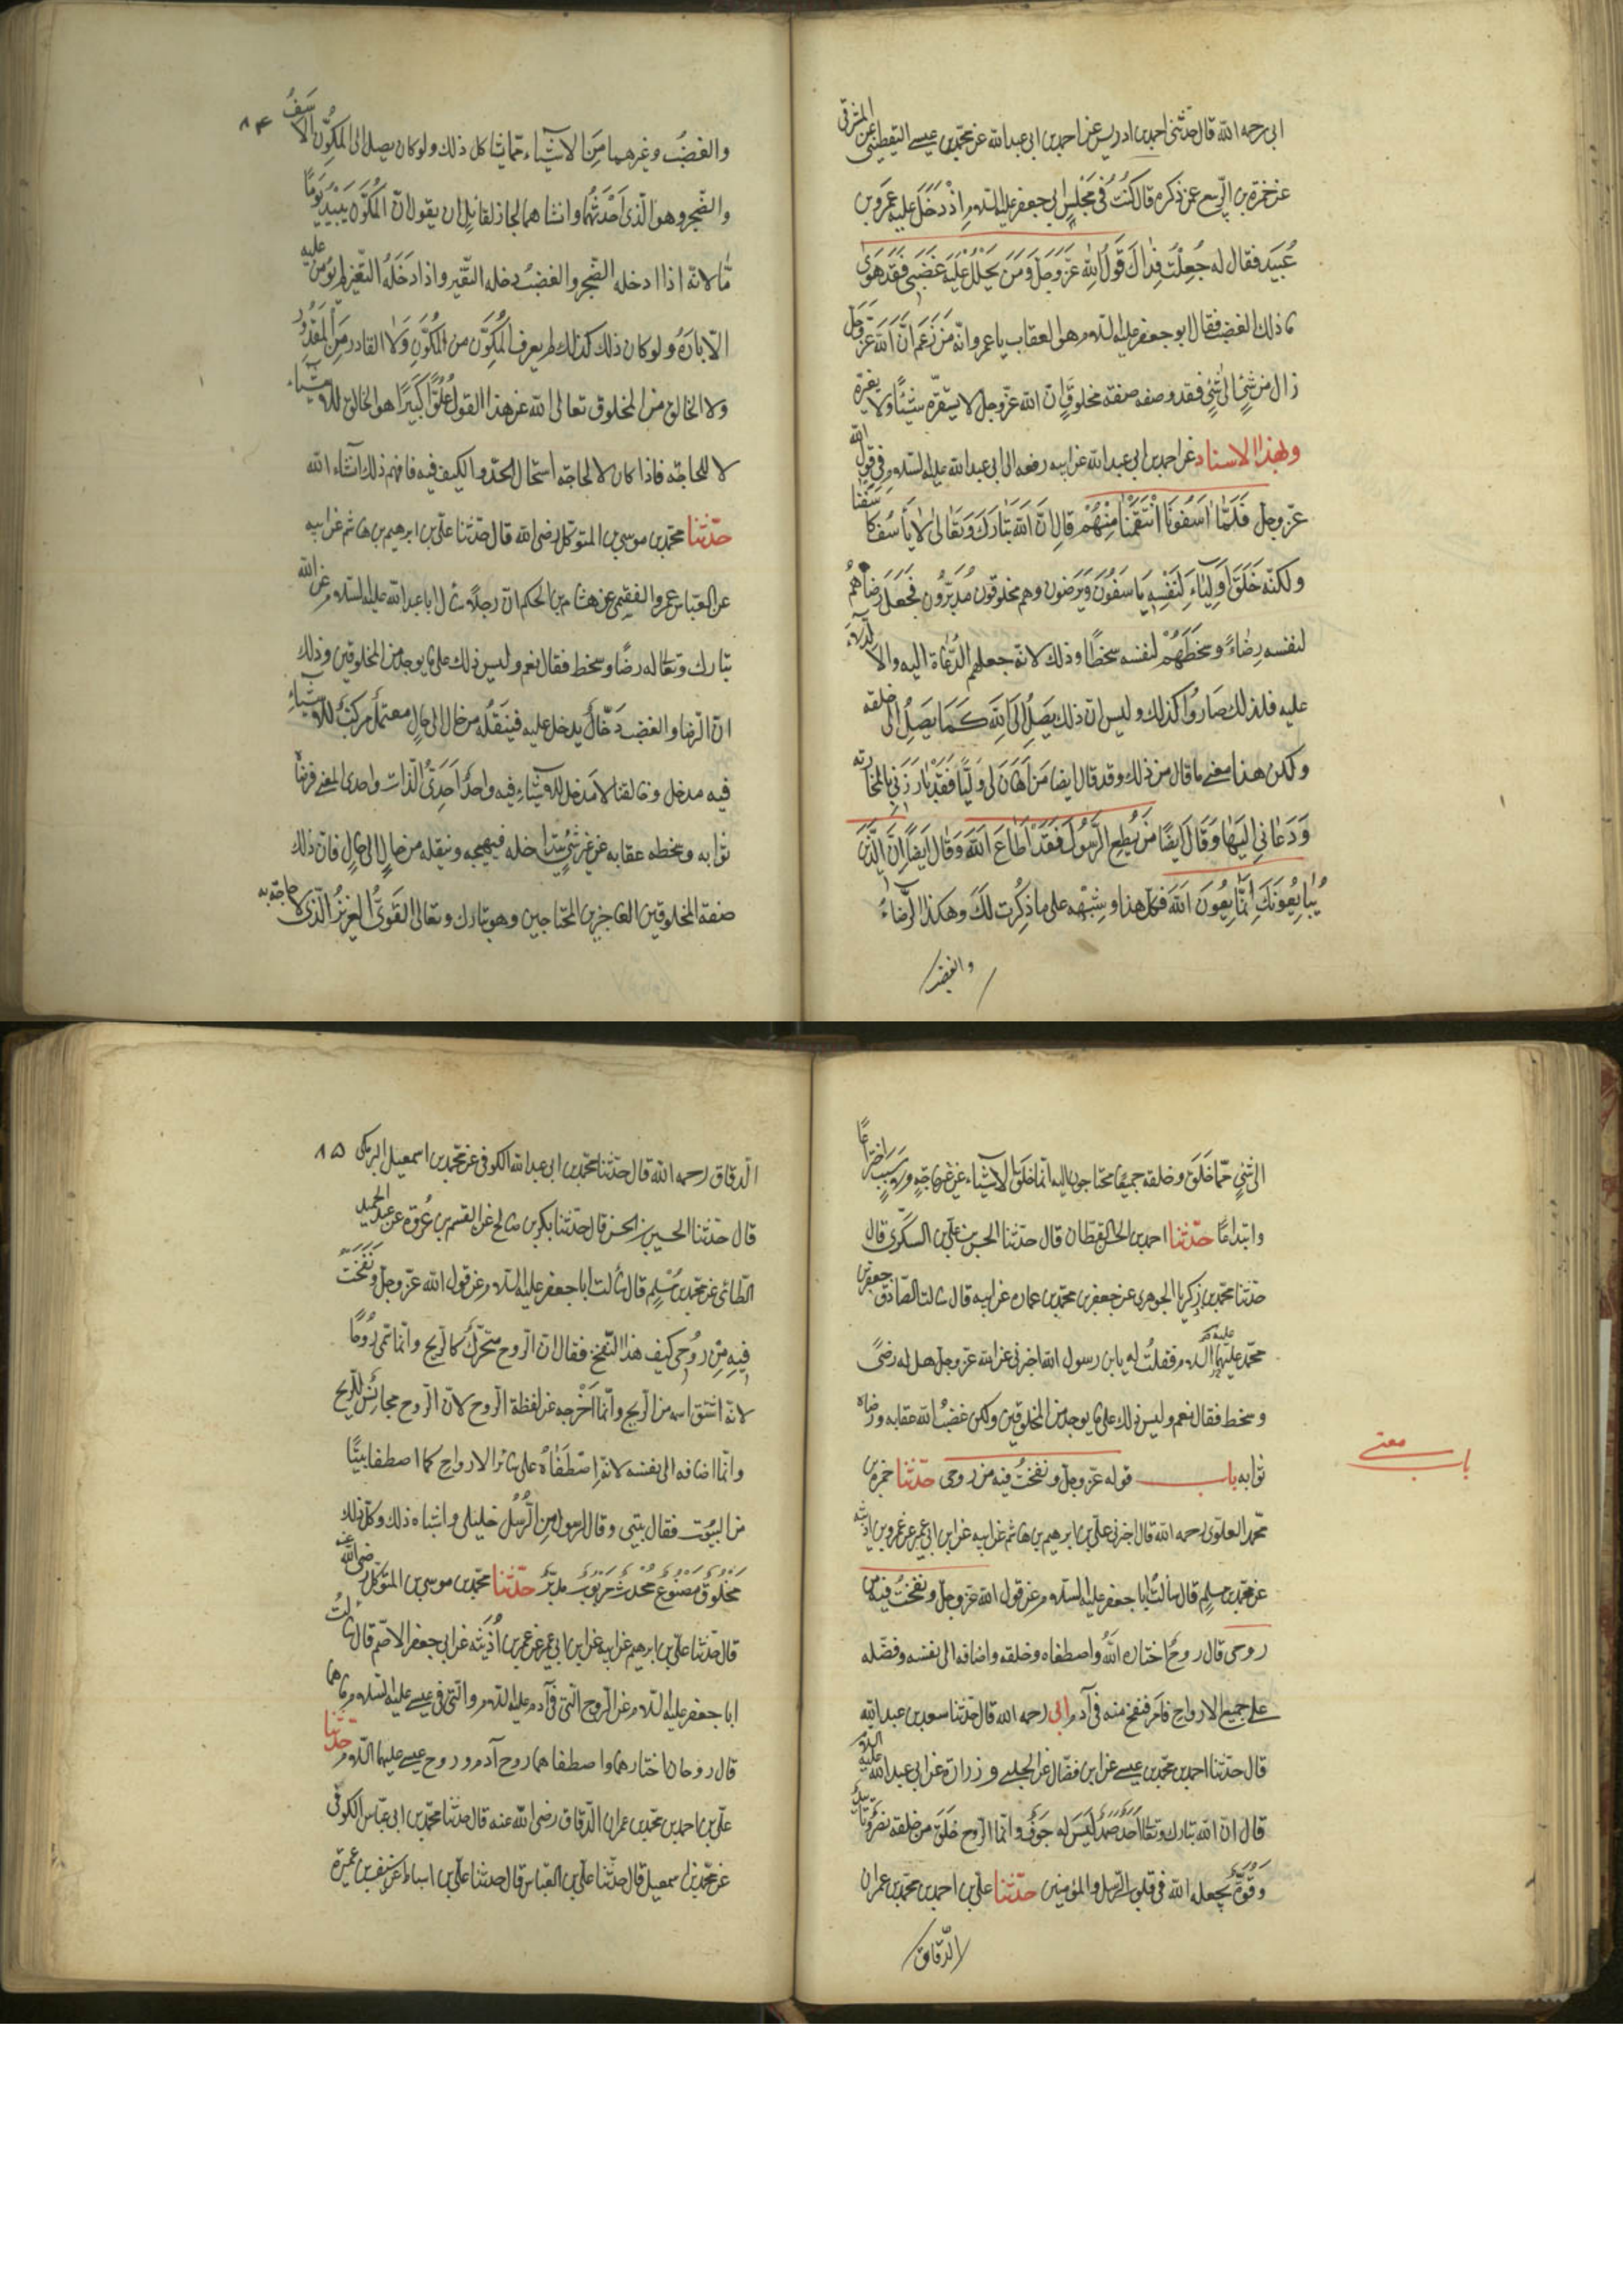 ابى رحمه الله قال حدثنى احمد بن ادريس عن احمد بن ابى عبد الله عن محمد بن عيسى اليقطينى عن المشرقى
عن حمزة بن الربيع عمن ذكره قال كُنْتُ فى مَجْلِسِ ابى جعفر عليه السلام اِذْ دَخَلَ عليه عمرو بن
عُبَيد فقال له جُعِلْتُ فِداك قَولُ اللهِ عَزَّ وَجَلَّ وَمَنْ يَحْلُلْ عَلَيْهِ غَضَبى فَقَدْ هَوٰى
ما ذلك الغضب فقال ابو جعفر عليه السلام هو العقاب يا عمرو انّه مَنْ زَعَمَ اَنَّ اللهَ عَزَّ وَجَلَّ
زال من شَىْءٍ الى شَىْءٍ فقد وصفه صفة مخلوقٍ ان الله عزّ وجل لا يستفزّه شىء ولا يغيّره
وبهذا الاسناد عن احمد بن ابى عبد الله عن ابيه رفعه الى ابى عبد الله عليه السلام فى قول الله
عزّ وجل فَلَمَّا اٰسَفُونَا انْتَقَمْنَا مِنْهُمْ قال اِنَّ اللهَ تَبَارَكَ وَتَعَالىٰ لا يَأسَفُ كأسَفنا
ولكنّه خَلَقَ اَولِيٰاءَ لِنَفْسِه يأسَفُونَ وَيَرضَون وهم مخلوقون مُدبَّرُون فَجَعَلَ رِضاهُم
لنفسه رِضاءً وسَخَطَهُمْ لنفسه سخطًا وذلك لانّه جعلهم الدُّعاة اليه والادلّاء
عليه فلذلك صَارُوا كذلك وليس ان ذلك يَصِلُ اِلَى اللهِ كَمَا يَصِلُ الى خلقه
ولكن هذا معنى ما قال من ذلك وقد قال ايضا مَنْ اَهَانَ لى وَلِيًّا فَقَدْ بَارَزَنى بالمحاربة
وَدَعانى اِلَيهَا وَقَالَ ايضًا مَنْ يُطِعِ الرَّسُولَ فَقَدْ اَطَاعَ اللهَ وَقَالَ ايضًا اِنَّ الَّذِينَ
يُبَايِعُونَكَ اِنَّمَا يُبَايِعُونَ اللهَ فكل هذا وشِبْهه على ما ذكرت لَكَ وهكذا الرِّضاءُ
والغضب
٨٤
والغضبُ وغيرهما مِنَ الاشياء ممّا يشاكل ذلك ولو كان يصل الى المكوِّن الاَسَفُ
والضجر وهو الّذى اَحْدَثَهُما وانشاهما لجاز لقائلٍ ان يقول انّ المكوِّن يَبِيدُ يَومًا
مّا لانّه اذا دخله الضجر والغضبُ دخله التغيّر واذا دَخَلَهُ التغيّر لم يؤمن عليه
الابادَةُ ولو كان ذلك كذلك لم يعرف المكوِّن من المكوَّن وَلا القادر مِنَ المَقدُورِ
ولا الخالق من المخلوق تعالى الله عن هذا القول عُلُوًّا كَبِيرًا هو الخالق للاشياء
لا للحاجة فاذا كان لا لحاجة استحال الحدّ والكيف فيه فافهم ذلك انشاء الله
حدّثنا محمد بن موسى بن المتوكل رضى الله قال حدّثنا على بن ابرهيم بن هاشم عن ابيه
عن العباس عمرو الفقيمى عن هشام بن الحكم ان رجلًا سأل ابا عبد الله عليه السلام عن الله
تبارك وتعا له رضًا وسخط فقال نعم وليس ذلك على ما يوجد من المخلوقين وذلك
ان الرضا والغضب دَخّالٌ يدخل عليه فيَنقُله من حال الى حالٍ معتملٌ مركّبٌ للاشياء
فيه مدخل وخالقنا لا مَدخل للاشياء فيه واحدٌ اَحَدِىُّ الذات واحدى المعنى فرضاه
ثوابه وسخطه عقابه من غير شىءٍ يتداخله فيهيجه وينقله من حالٍ الى حالٍ فانّ ذلك
صفة المخلوقين العاجزين المحتاجين وهو تبارك وتعالى القَوىُّ العزيزُ الّذى لا حاجة به
الى شىءٍ ممّا خَلَقَ وخلقه جميعًا محتاجون اليه انّما خَلَقَ الاشياء من غير حاجةٍ ولا سببٍ اختراعًا
وابتداعًا حدّثنا احمد بن الحسن القطان قال حدثنا الحسن بن على بن السكّرى قال
حدثنا محمد بن زكريا الجوهرى عن جعفر بن محمد بن عماره عن ابيه قال سالت الصادق جعفر بن
محمّد عليهما السلام فقلتُ له يا بن رسول الله اخبرنى عن الله عزّ وجل هل له رضًى
وسخط فقال نعم وليس ذلك على ما يوجد من المخلوقين ولكن غضبُ الله عقابه ورضاه
باب معنى
ثوابه باب قوله عزّ وجل ونفختُ فيه من روحى حدّثنا حمزة بن
محمد العلوى رحمه الله قال اخبرنى على بن ابرهيم بن هاشم عن ابيه عن ابن ابى عمير عن عمرو بن اذينه
عن محمّد بن مسلم قال سالتُ ابا جعفر عليه السلام عن قول الله عزّ وجل ونفختُ فيه من
روحى قال روحٌ اختاره اللهُ واصطفاه وخلقه واضافه الى نفسه وفضّله
على جميع الارواح فامَر فنفخ منه فى آدم ابى رحمه الله قال حدّثنا سعد بن عبد الله
قال حدّثنا احمد بن محمّد بن عيسى عن ابن فضّال عن الحلبى وزرارة عن ابى عبد الله عليه السلام
قال ان الله تبارك وتعا اَحَدٌ صَمَدٌ لَيْسَ له جَوفٌ وانّما الرّوح خلقٌ من خلقه نصرٌ وتأييدٌ
وَقُوَّةٌ يجعله الله فى قلوب الرسل والمؤمنين حدّثنا على بن احمد بن محمّد بن عمران
الدّقاق
٨٥
الدقاق رحمه الله قال حدّثنا محمّد بن ابى عبد الله الكوفى عن محمّد بن اسمعيل البرمكى
قال حدّثنا الحسين بن الحسن قال حدّثنا بكر بن صالح عن القسم بن عُروَة عن عبد الحميد
الطّائى عن محمّد بن مُسْلِم قال سألت ابا جعفر عليه السلام عن قول الله عزّ وجل ونَفَخْتُ
فيهِ مِنْ رُوحى كيف هذا النّفخ فقال انّ الرّوح متحرّكٌ كالرّيح وانّما سمّى رُوحًا
لانّه اشتق اسمه من الرّيح وانّما اَخْرجه عن لفظة الرّوح لانّ الرّوح مجانسٌ للرّيح
وانّما اضافه الى نفسه لانّه اِصْطَفَاهُ على سائر الارواح كما اصطفا بيتًا
من البُيُوت فقال بيتى وقال لرسولٍ من الرُّسُل خليلى واشباه ذلك وكلّ ذلك
مَخلُوقٌ مَصْنُوعٌ مُحْدَثٌ مَربُوبٌ مدبّر حدّثنا محمّد بن موسى بن المتوكل رضى الله عنه
قال حدّثنا على بن ابرهيم عن ابيه عن ابن ابى عمير عن عمر بن اُذَينَه عن ابى جعفر الاصمّ قال سألتُ
ابا جعفر عليه السلام عن الرّوح الّتى فى آدم عليه السلام والّتى فى عيسى عليه السلام ما هما
قال روحان اختارهما واصطفاهما روح آدم وروح عيسى عليهما السلام حدّثنا
على بن احمد بن محمّد بن عمران الدّقاق رضى الله عنه قال حدّثنا محمّد بن ابى عبّاس الكوفى
عن محمّد بن اسمعيل قال حدّثنا على بن العبّاس قال حدثنا على بن اسباط عن سيف بن عميرة